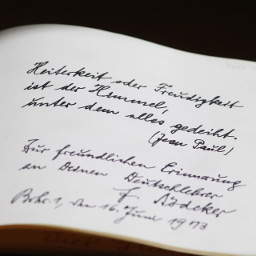 Heiterkeit oder Freudigkeit
ist der Himmel,
unter dem alles gedeiht.
(Jean Paul)
Zur freundlichen Erinnerung
an Deinen Deutschlehrer
F. Rödecker
den 16. Juni 1973